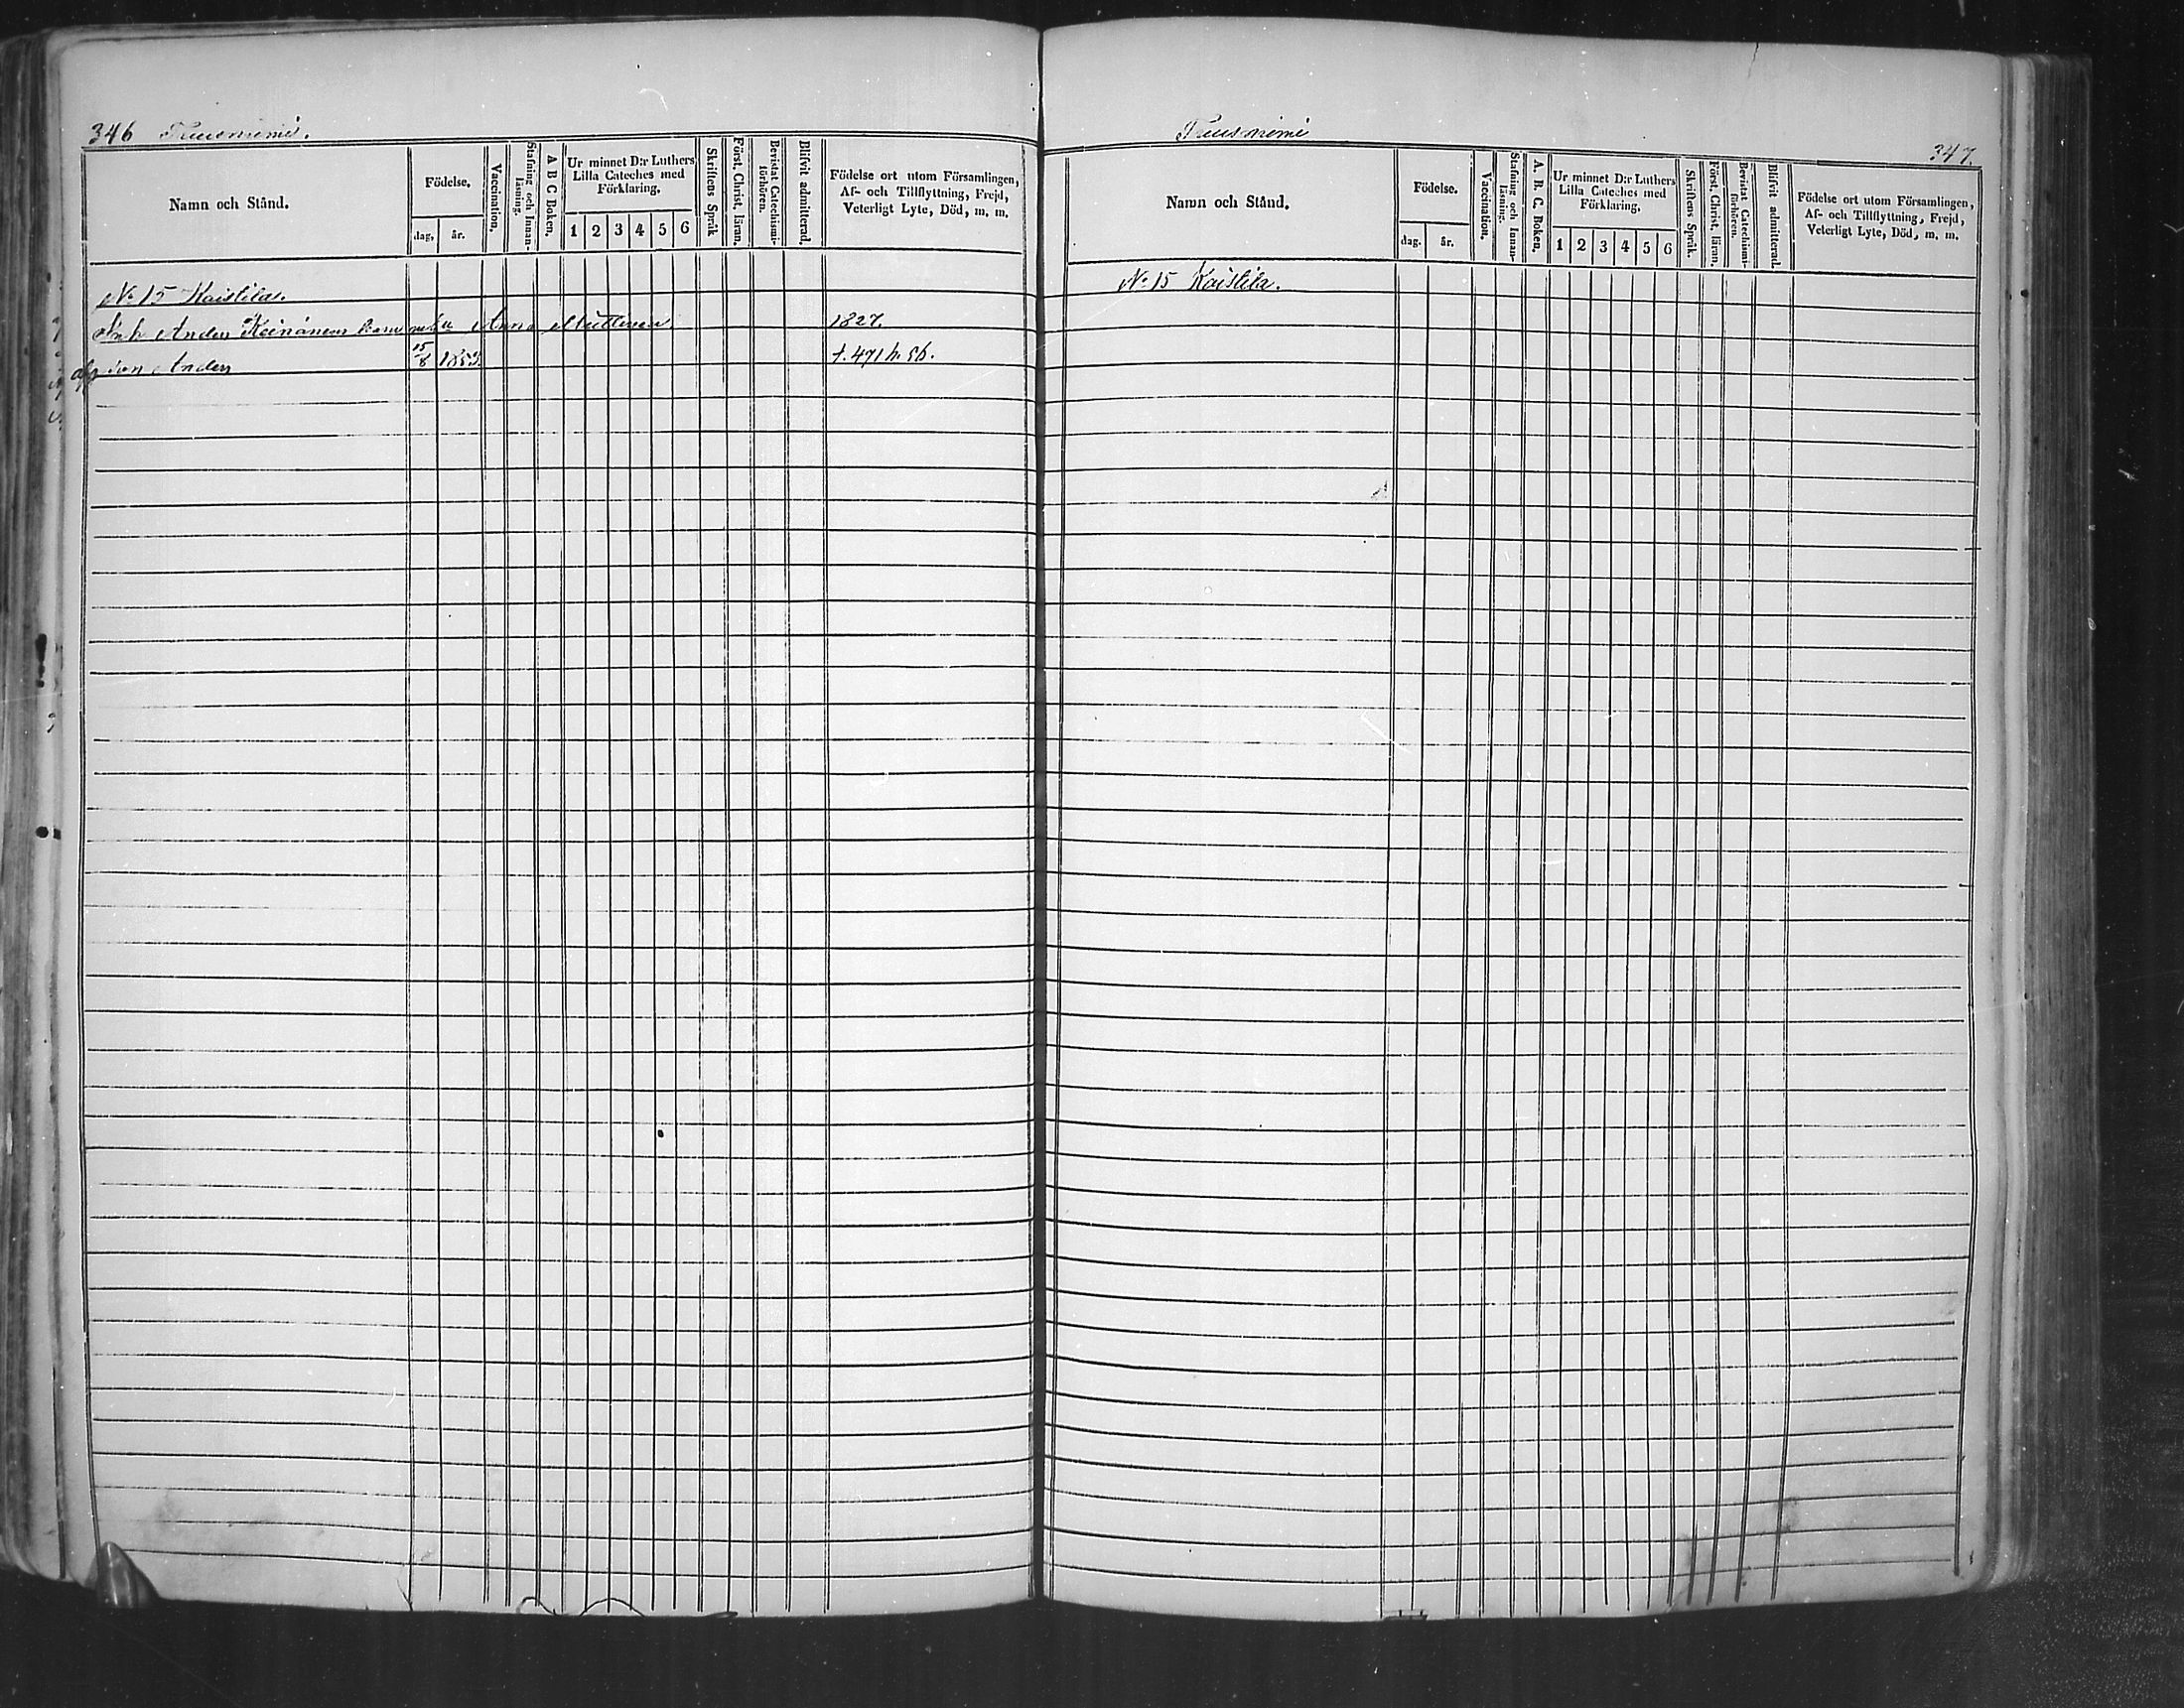 346 Tuusniemi.
Namn och Stånd.
Födelse.
dag. år.
Vaccination.
Stafning och Innan-läsning.
A B C Boken.
Ur minnet D:r Luthers
Lilla Cateches med
Förklaring.
1 2 3 4 5 6
Skriftens Språk
Först. Christ. läran.
Bevistat Catechismi-förhören.
Blifvit admitterad.
Födelse ort utom Församlingen,
Af- och Tillflyttning, Frejd,
Veterligt Lyte, Död, m. m.
No 15 Kaislila.
Anders Keinänen Anna 1827.
son Anders 15/8 1853. f. 471 h. 56.
Tuusniemi
347.
Namn och Stånd.
Födelse.
dag. år.
Vaccination.
Stafning och Innan-läsning.
A. B. C. Boken.
Ur minnet D:r Luthers
Lilla Cateches med
Förklaring.
1 2 3 4 5 6
Skriftens Språk.
Först. Christ. läran.
Bevistat Catechismi-förhören.
Blifvit admitterad.
Födelse ort utom Församlingen,
Af- och Tillflyttning, Frejd,
Veterligt Lyte, Död, m. m.
No 15 Kaislila.